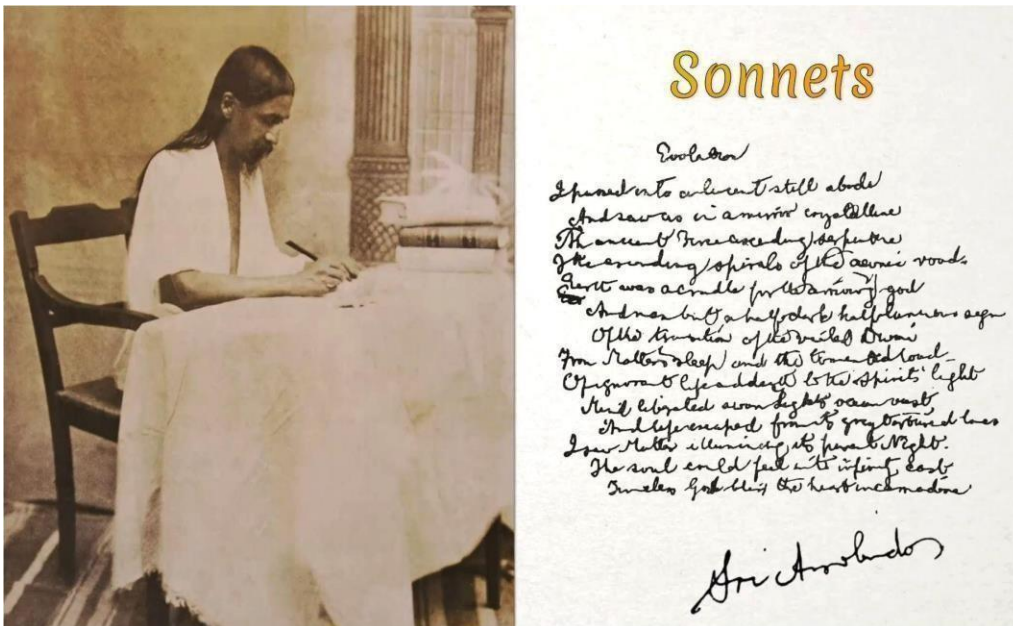 Sonnets
Evolution
I passed into a lucent still abode
And saw as in a mirror crystalline
An ancient Force ascending serpentine
The spirals of the aeonic road.
Earth was a cradle for the arriving god
And man but a half-dark half-luminous sign
Of the transition of the veiled Divine
From Matter's sleep and the tormented load
Of ignorant life and death to the Spirit's light
Mind liberated swam Light's ocean vast
And life escaped from its grey tortured line
I saw Matter illumining its parent Night.
The soul could feel into infinity cast
Timeless God-bliss the heart incarnadine
Sri Aurobindo